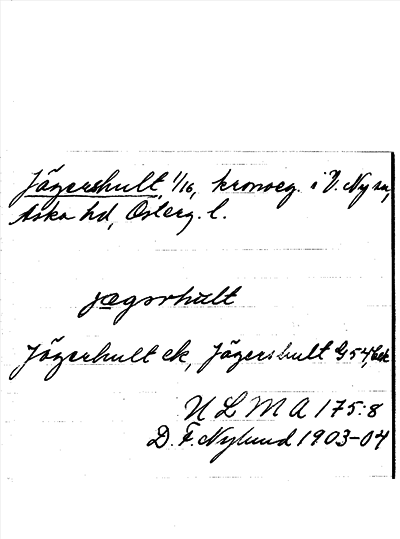 Jägershult, 1/16, kronoeg. i V. Ny sn,
Aska hd, Österg. l.
jægərhult
Jägerhult ek, Jägershult G 54,
U L M A 175:8
D. F. Nylund 1903-04